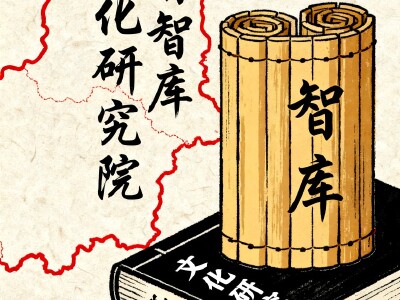 智库
化研究院
智库
文化研